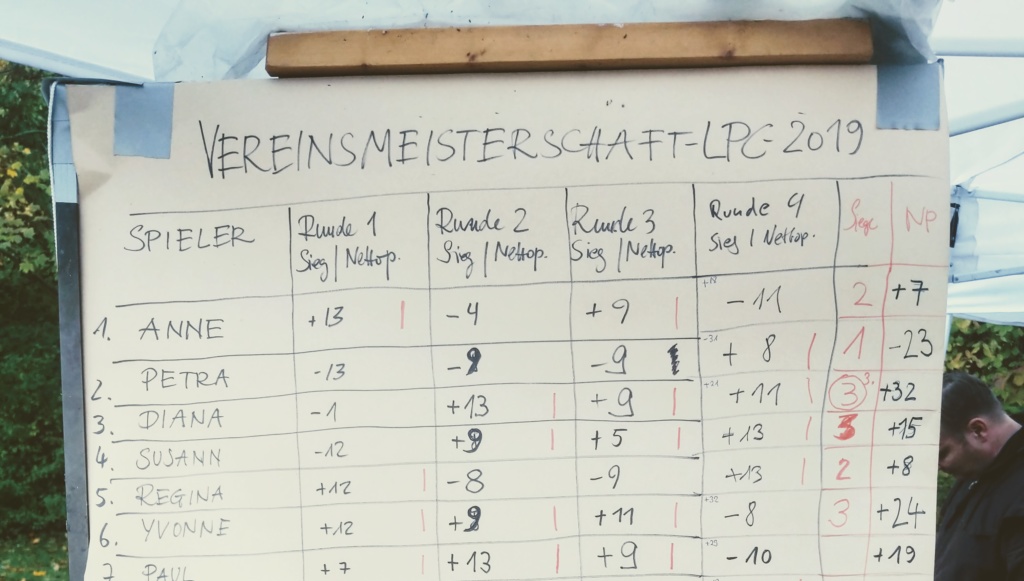 VEREINSMEISTERSCHAFT-LPC-2019
SPIELER Runde 1 Runde 2 Runde 3 Runde 4 Siege NP
Sieg | Nettop. Sieg | Nettop. Sieg | Nettop. Sieg | Nettop.
1. ANNE +13 | -4 +9 | -11 2 +7
2. PETRA -13 -9 -9 -31 +8 | 1 -23
3. DIANA -1 +13 | +9 | +21 +11 | 3 3. +32
4. SUSANN -12 +9 | +5 | +13 | 3 +15
5. REGINA +12 | -8 -9 +13 | 2 +8
6. YVONNE +12 | +9 | +11 | +32 -8 3 +24
7 PAUL +7 | +13 | +9 | +29 -10 +19